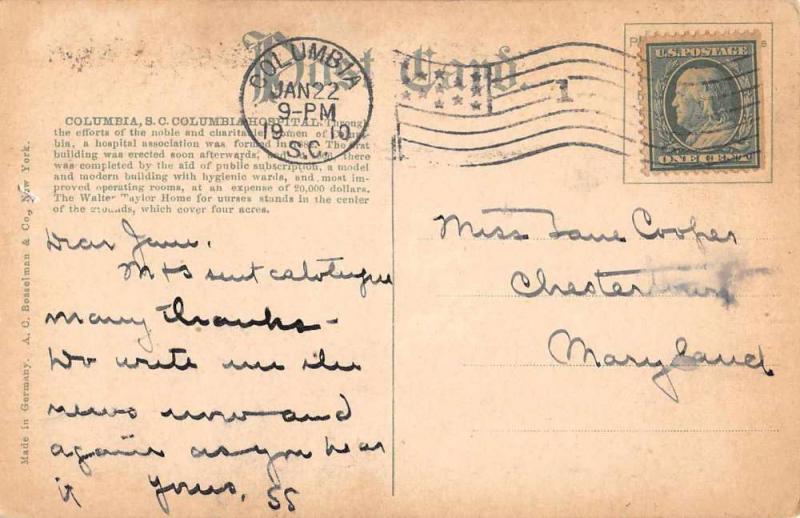 Post Card.
COLUMBIA
JAN 22
9-PM
1910
S.C.
1
U.S. POSTAGE
ONE CENT
COLUMBIA, S.C. COLUMBIA HOSPITAL. Through
the efforts of the noble and charitable women of Colum-
bia, a hospital association was formed in The first
building was erected soon afterwards, and there
was completed by the aid of public subscription, a model
and modern building with hygienic wards, and most im-
proved operating rooms, at an expense of 20,000 dollars.
The Walter Taylor Home for nurses stands in the center
of the grounds, which cover four acres.
Made in Germany. A. C. Bosselman & Co., New York.
Dear Jane.
M & S sent catalogue
many thanks -
Do write me the
news now and
again as you hear
it Yours, SS
Miss Jane Cooper
Chestertown
Maryland